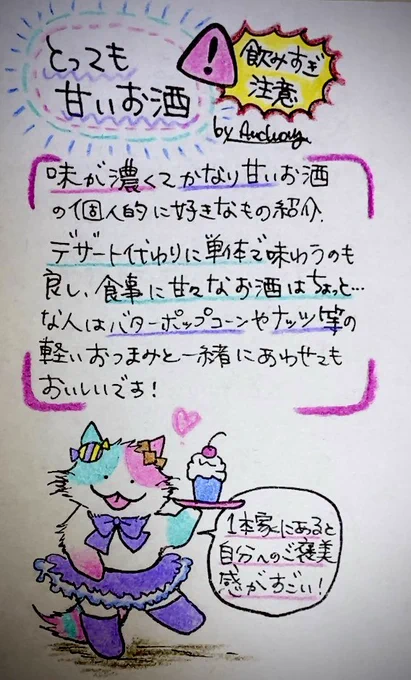 とっても
甘いお酒
!
飲みすぎ
注意
by
味が濃くてかなり甘いお酒
の個人的に好きなもの紹介.
デザート代わりに単体で味わうのも
良し、食事に甘々なお酒はちょっと…
な人はバターポップコーンやナッツ等の
軽いおつまみと一緒にあわせても
おいしいです!
1本家にあると
自分へのご褒美
感がすごい!